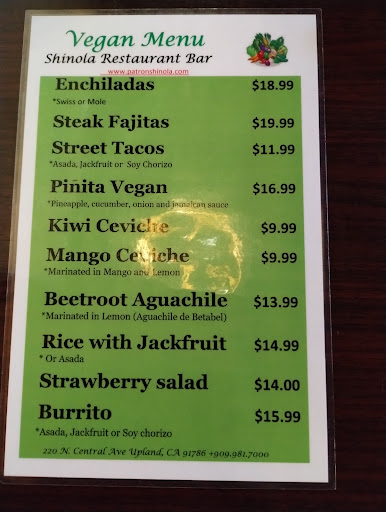 Vegan Menu
Shinola Restaurant Bar
www.patronshinola.com
Enchiladas $18.99
*Swiss or Mole
Steak Fajitas $19.99
Street Tacos $11.99
*Asada, Jackfruit or Soy Chorizo
Piñita Vegan $16.99
*Pineapple, cucumber, onion and jamaican sauce
Kiwi Ceviche $9.99
Mango Ceviche $9.99
*Marinated in Mango and Lemon
Beetroot Aguachile $13.99
*Marinated in Lemon (Aguachile de Betabel)
Rice with Jackfruit $14.99
* Or Asada
Strawberry salad $14.00
Burrito $15.99
*Asada, Jackfruit or Soy chorizo
220 N. Central Ave Upland, CA 91786 +909.981.7000